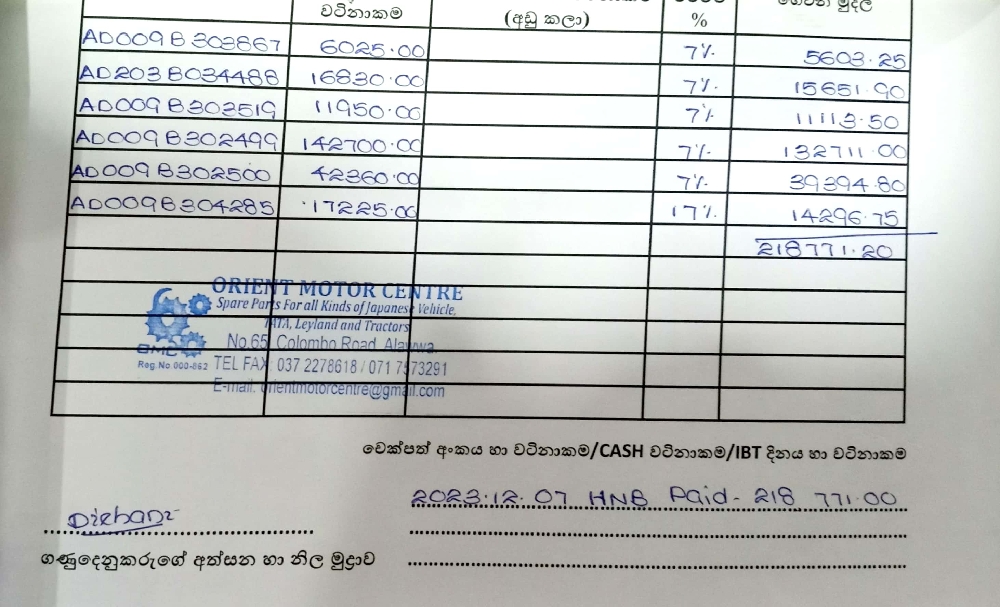 වටිනාකම (අඩු කලා) %
AD009B303867 6025.00 7% 5603.25
AD203B034488 16830.00 7% 15651.90
AD009B303519 11950.00 7% 11113.50
AD009B302499 142700.00 7% 132711.00
AD009B302500 42360.00 7% 39394.80
AD009B304285 17225.00 17% 14296.75
218771.20
ORIENT MOTOR CENTRE
Spare Parts For all Kinds of Japanese Vehicle,
TATA, Leyland and Tractors
No.65, Colombo Road, Alawwa.
OMC
Reg.No 000-862
TEL FAX: 037 2278618 / 071 7573291
E-mail: orientmotorcentre@gmail.com
චෙක්පත් අංකය හා වටිනාකම/CASH වටිනාකම/IBT දිනය හා වටිනාකම
2023.12.07 HNB Paid - 218 771.00
ගණුදෙනුකරුගේ අත්සන හා නිල මුද්‍රාව